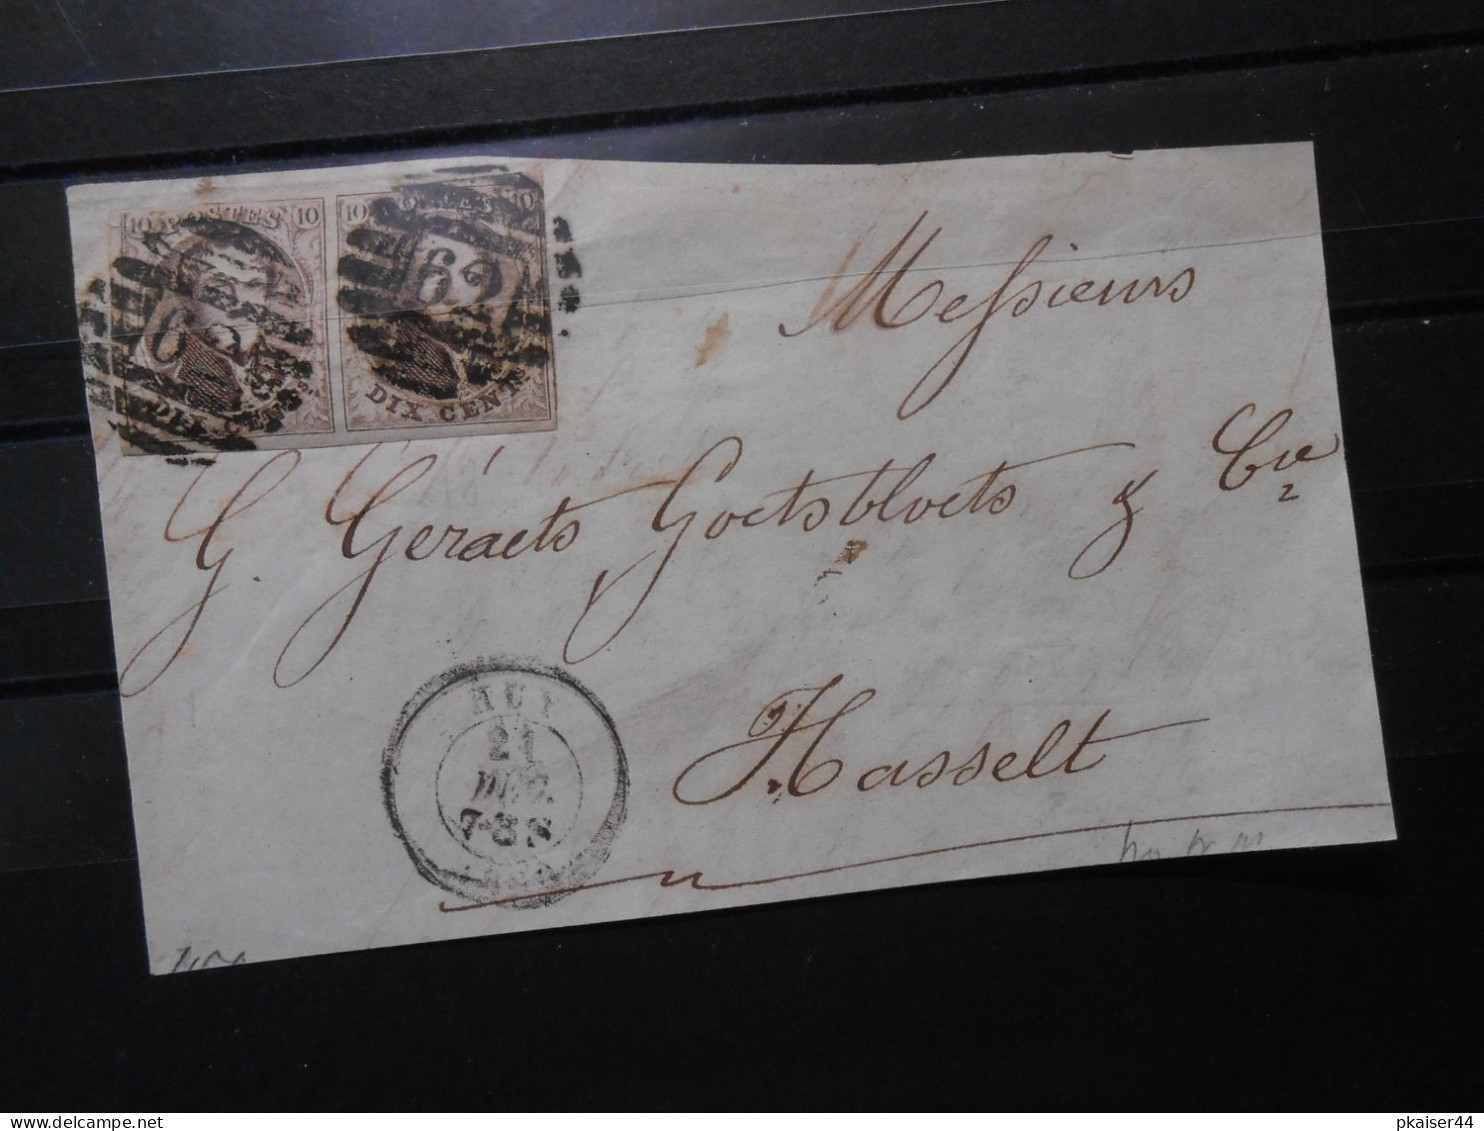 10 POSTES 10 10 POSTES 10
62 62
DIX CENTS. DIX CENTS.
Messieurs
G. Geraets Goetsbloets & Cie
Hasselt
HUY
21
DEC.
7-8 S
pkaiser44